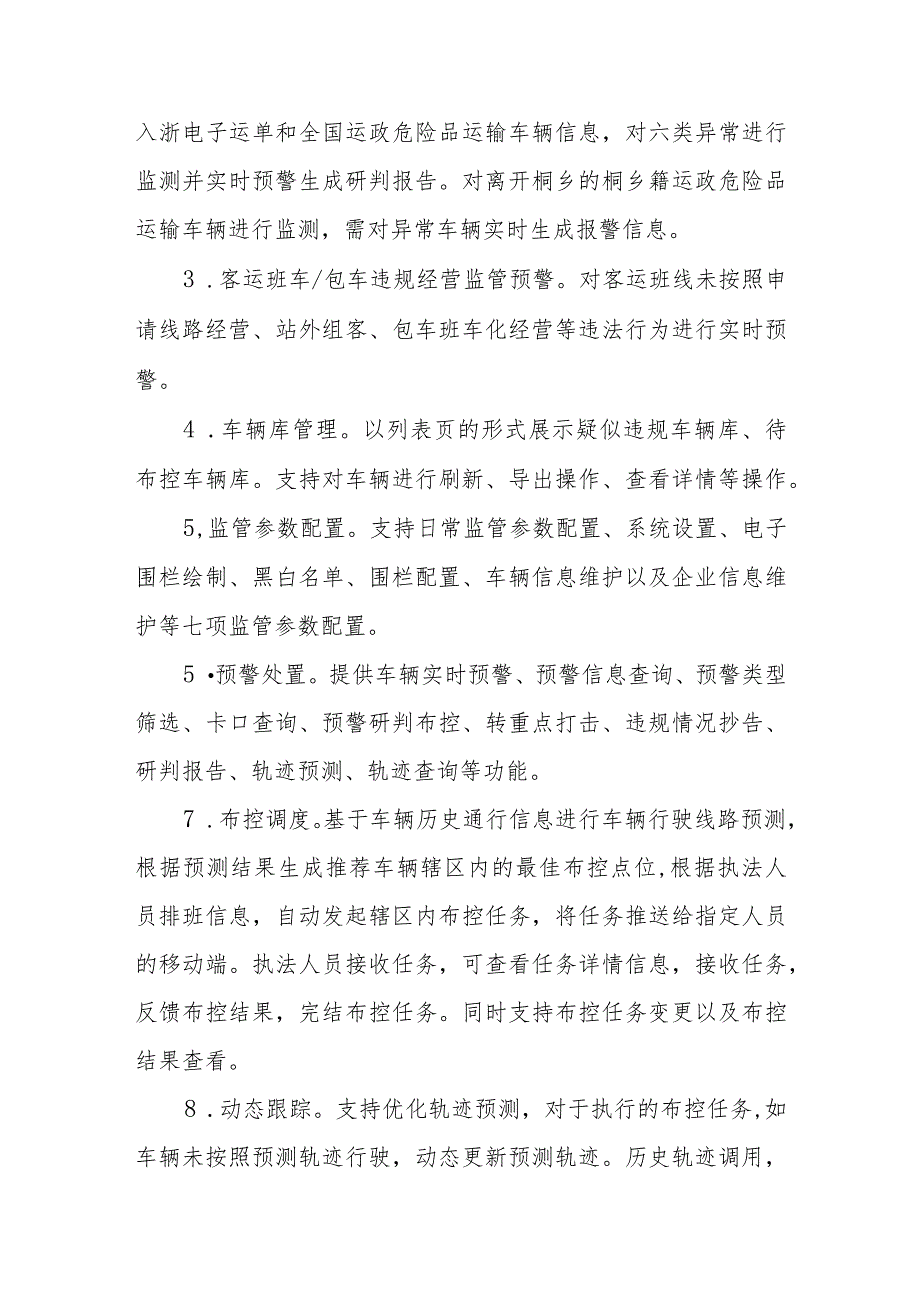 入浙电子运单和全国运政危险品运输车辆信息，对六类异常进行
监测并实时预警生成研判报告。对离开桐乡的桐乡籍运政危险品
运输车辆进行监测，需对异常车辆实时生成报警信息。
3 .客运班车/包车违规经营监管预警。对客运班线未按照申
请线路经营、站外组客、包车班车化经营等违法行为进行实时预
警。
4 .车辆库管理。以列表页的形式展示疑似违规车辆库、待
布控车辆库。支持对车辆进行刷新、导出操作、查看详情等操作。
5,监管参数配置。支持日常监管参数配置、系统设置、电子
围栏绘制、黑白名单、围栏配置、车辆信息维护以及企业信息维
护等七项监管参数配置。
5 •预警处置。提供车辆实时预警、预警信息查询、预警类型
筛选、卡口查询、预警研判布控、转重点打击、违规情况抄告、
研判报告、轨迹预测、轨迹查询等功能。
7 .布控调度。基于车辆历史通行信息进行车辆行驶线路预测，
根据预测结果生成推荐车辆辖区内的最佳布控点位,根据执法人
员排班信息，自动发起辖区内布控任务，将任务推送给指定人员
的移动端。执法人员接收任务，可查看任务详情信息，接收任务，
反馈布控结果，完结布控任务。同时支持布控任务变更以及布控
结果查看。
8 .动态跟踪。支持优化轨迹预测，对于执行的布控任务,如
车辆未按照预测轨迹行驶，动态更新预测轨迹。历史轨迹调用，